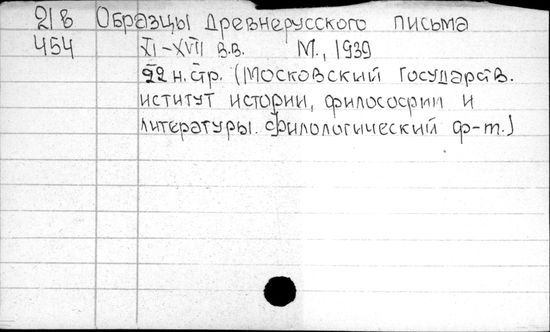 218 Образцы древнерусского письма
454 XI-XVII в.в. М., 1939
92 н.стр. (Московский государств.
иститут истории, философии и
литературы. филологический ф-т.)